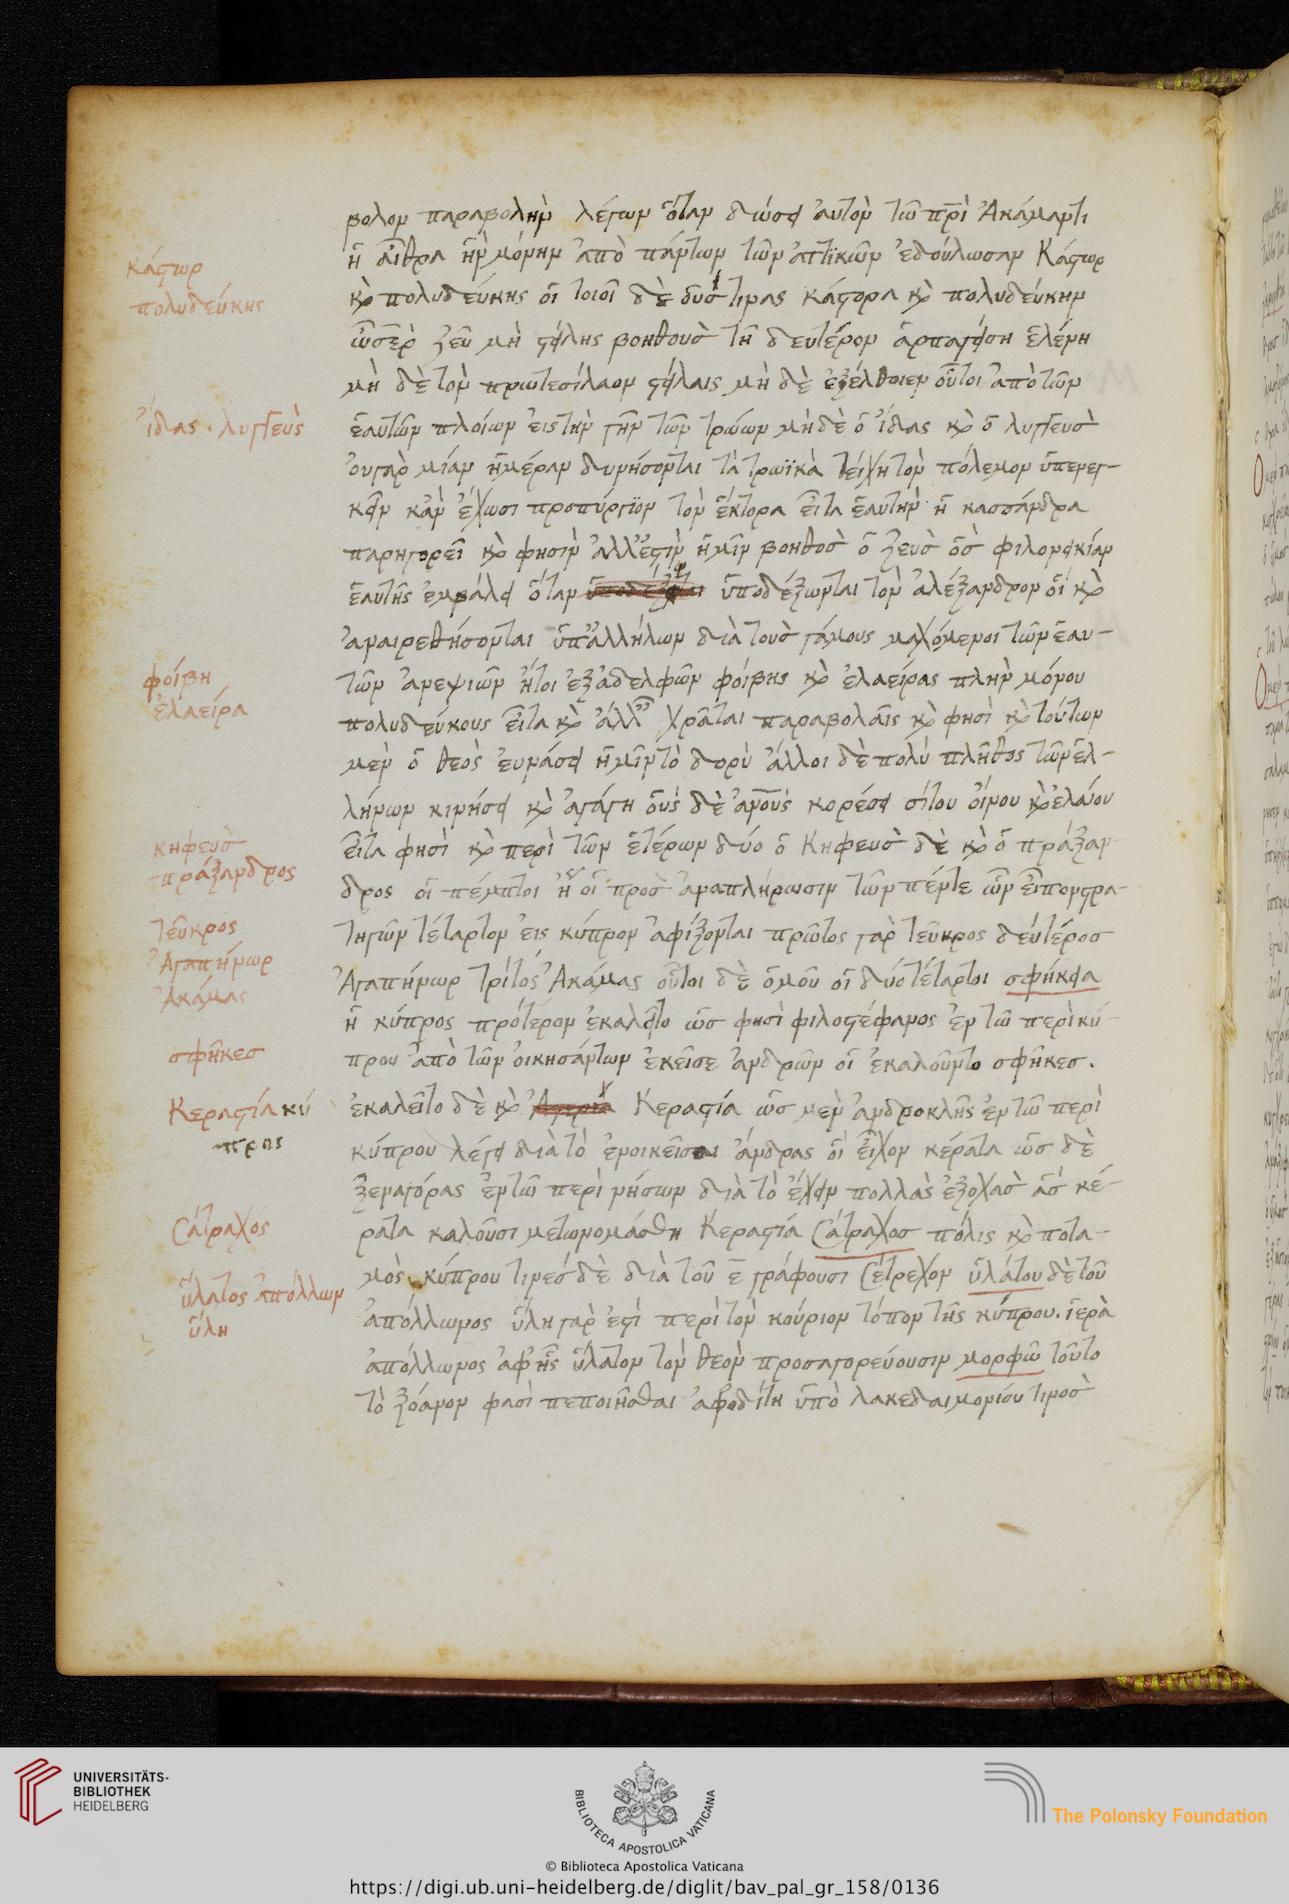 βολον παραβολὴν λέγων ὅταν δώσει αὐτὸν τῶ πρὶ Ἀκάμαντι
ἡ αἴθρα ἣν μόνην ἀπὸ πάντων τῶν ἀττϊκῶν ἐδούλωσαν Κάστωρ
κάστωρ
πολυδεύκης
κὶ πολυδεύκης οἱ τοιοῖ δὲ δυστινας κάστορα κὶ πολυδεύκην
ὦ ζεῦ μὴ στείλης βοηθοὺς τῆ δευτέρον ἁρπαγείση ἑλένη
μὴ δὲ τὸν πρωτεσίλαον στείλαις μὴ δὲ ἐξέλθοιεν οὗτοι ἀπὸ τῶν
ἴδας . λυγγεὺς
ἑαυτῶν πλοίων εἰς τὴν γῆν τῶν τρώων μὴ δὲ ὁ ἴδας κὶ ὁ λυγγευς
οὐ γὰρ μίαν ἡμέραν δυνήσονται τὰ τρωϊκὰ τείχη τὸν πόλεμον ὑπενεγ-
κεῖν κἂν ἔχωσι προπύργϊον τὸν ἕκτορα εἶτα ἑαυτὴν ἡ κασσάνδρα
παρηγορεῖ κὶ φησὶν ἀλλ' ἔστιν ἡμῖν βοηθὸς ὁ ζευς ὃς φιλονεικίαν
ἑαυτῆς ἐμβάλει ὅταν ὑποδέξωνται τὸν ἀλέξανδρον οἳ κὶ
ἀναιρεθήσονται ὑπ' ἀλλήλων διὰ τοὺς γάμους μαχόμενοι τῶν ἑαυ-
φοίβη
ἐλαείρα
τῶν ἀνεψιῶν ἤτοι ἐξαδελφῶν φοίβης κὶ ἐλαείρας πλὴν μόνου
πολυδεύκους εἶτα κὶ ἄλλ χρᾶται παραβολαῖς κὶ φησὶ κὶ τούτων
μὲν ὁ θεὸς εὐνάσει ἡμῖν τὸ δορὺ ἄλλοι δὲ πολὺ πλῆθος τῶν ἑλ-
λήνων κινήσει κὶ ἀγάγη οὓς δὲ ἀνοὺς κορέσει σίτου οἴνου κὶ ἐλαίου
κηφεὺς
πράξανδρος
εἶτα φησὶ κὶ περὶ τῶν ἑτέρων δύο ὁ Κηφευς δὲ κὶ ὁ πράξαν
δρος οἱ πέμπτοι οἱ πρὸς ἀναπλήρωσιν τῶν πέντε ὧν εἶπον στρα-
τεῦκρος
Ἀγαπήνωρ
Ἀκάμας
τηγῶν τέταρτον εἰς κύπρον ἀφίξονται πρῶτος γὰρ τεῦκρος δεύτερος
Ἀγαπήνωρ τρίτος Ἀκάμας οὗτοι δὲ ὁμοῦ οἱ δύο τέταρτοι σφήκεια
ἡ κύπρος πρότερον ἐκαλεῖτο ὥς φησὶ φιλοστέφανος ἐν τῶ περὶ κύ-
σφῆκες
πρου ἀπὸ τῶν οἰκησάντων ἐκεῖσε ἀνδρῶν οἳ ἐκαλοῦντο σφῆκες .
Κεραστία κύ
προς
ἐκαλεῖτο δὲ κὶ Κεραστία ὡς μὲν ἀνδροκλῆς ἐν τῶ περὶ
κύπρου λέγει διὰ τὸ ἐνοικεῖσαι ἄνδρας οἳ εἶχον κέρατα ὡς δὲ
ξεναγόρας ἐν τῶ περὶ νήσων διὰ τὸ ἔχειν πολλὰς ἐξοχὰς ἃς κέ-
Σάτραχος
ρατα καλοῦσι μετωνομάσθη Κεραστία Σάτραχος πόλις κὶ ποτα-
ὕλατος ἀπόλλων
ὕλη
μὸς κύπρου τινὲς δὲ διὰ τοῦ ε γράφουσι Σέτρεχον ὑλάτου δὲ τοῦ
ἀπόλλωνος ὕλη γὰρ ἐστὶ περὶ τὸν κούριον τόπον τῆς κύπρου . ἱερὰ
ἀπόλλωνος ἀφ' ἧς ὕλατον τὸν θεὸν προσαγορεύουσιν μορφῶ τοῦτο
τὸ ξόανον φασὶ πεποιῆσθαι ἀφροδίτη ὑπὸ λακεδαιμονίου τινος
UNIVERSITÄTS-
BIBLIOTHEK
HEIDELBERG
BIBLIOTECA APOSTOLICA VATICANA
The Polonsky Foundation
© Biblioteca Apostolica Vaticana
https://digi.ub.uni-heidelberg.de/diglit/bav_pal_gr_158/0136